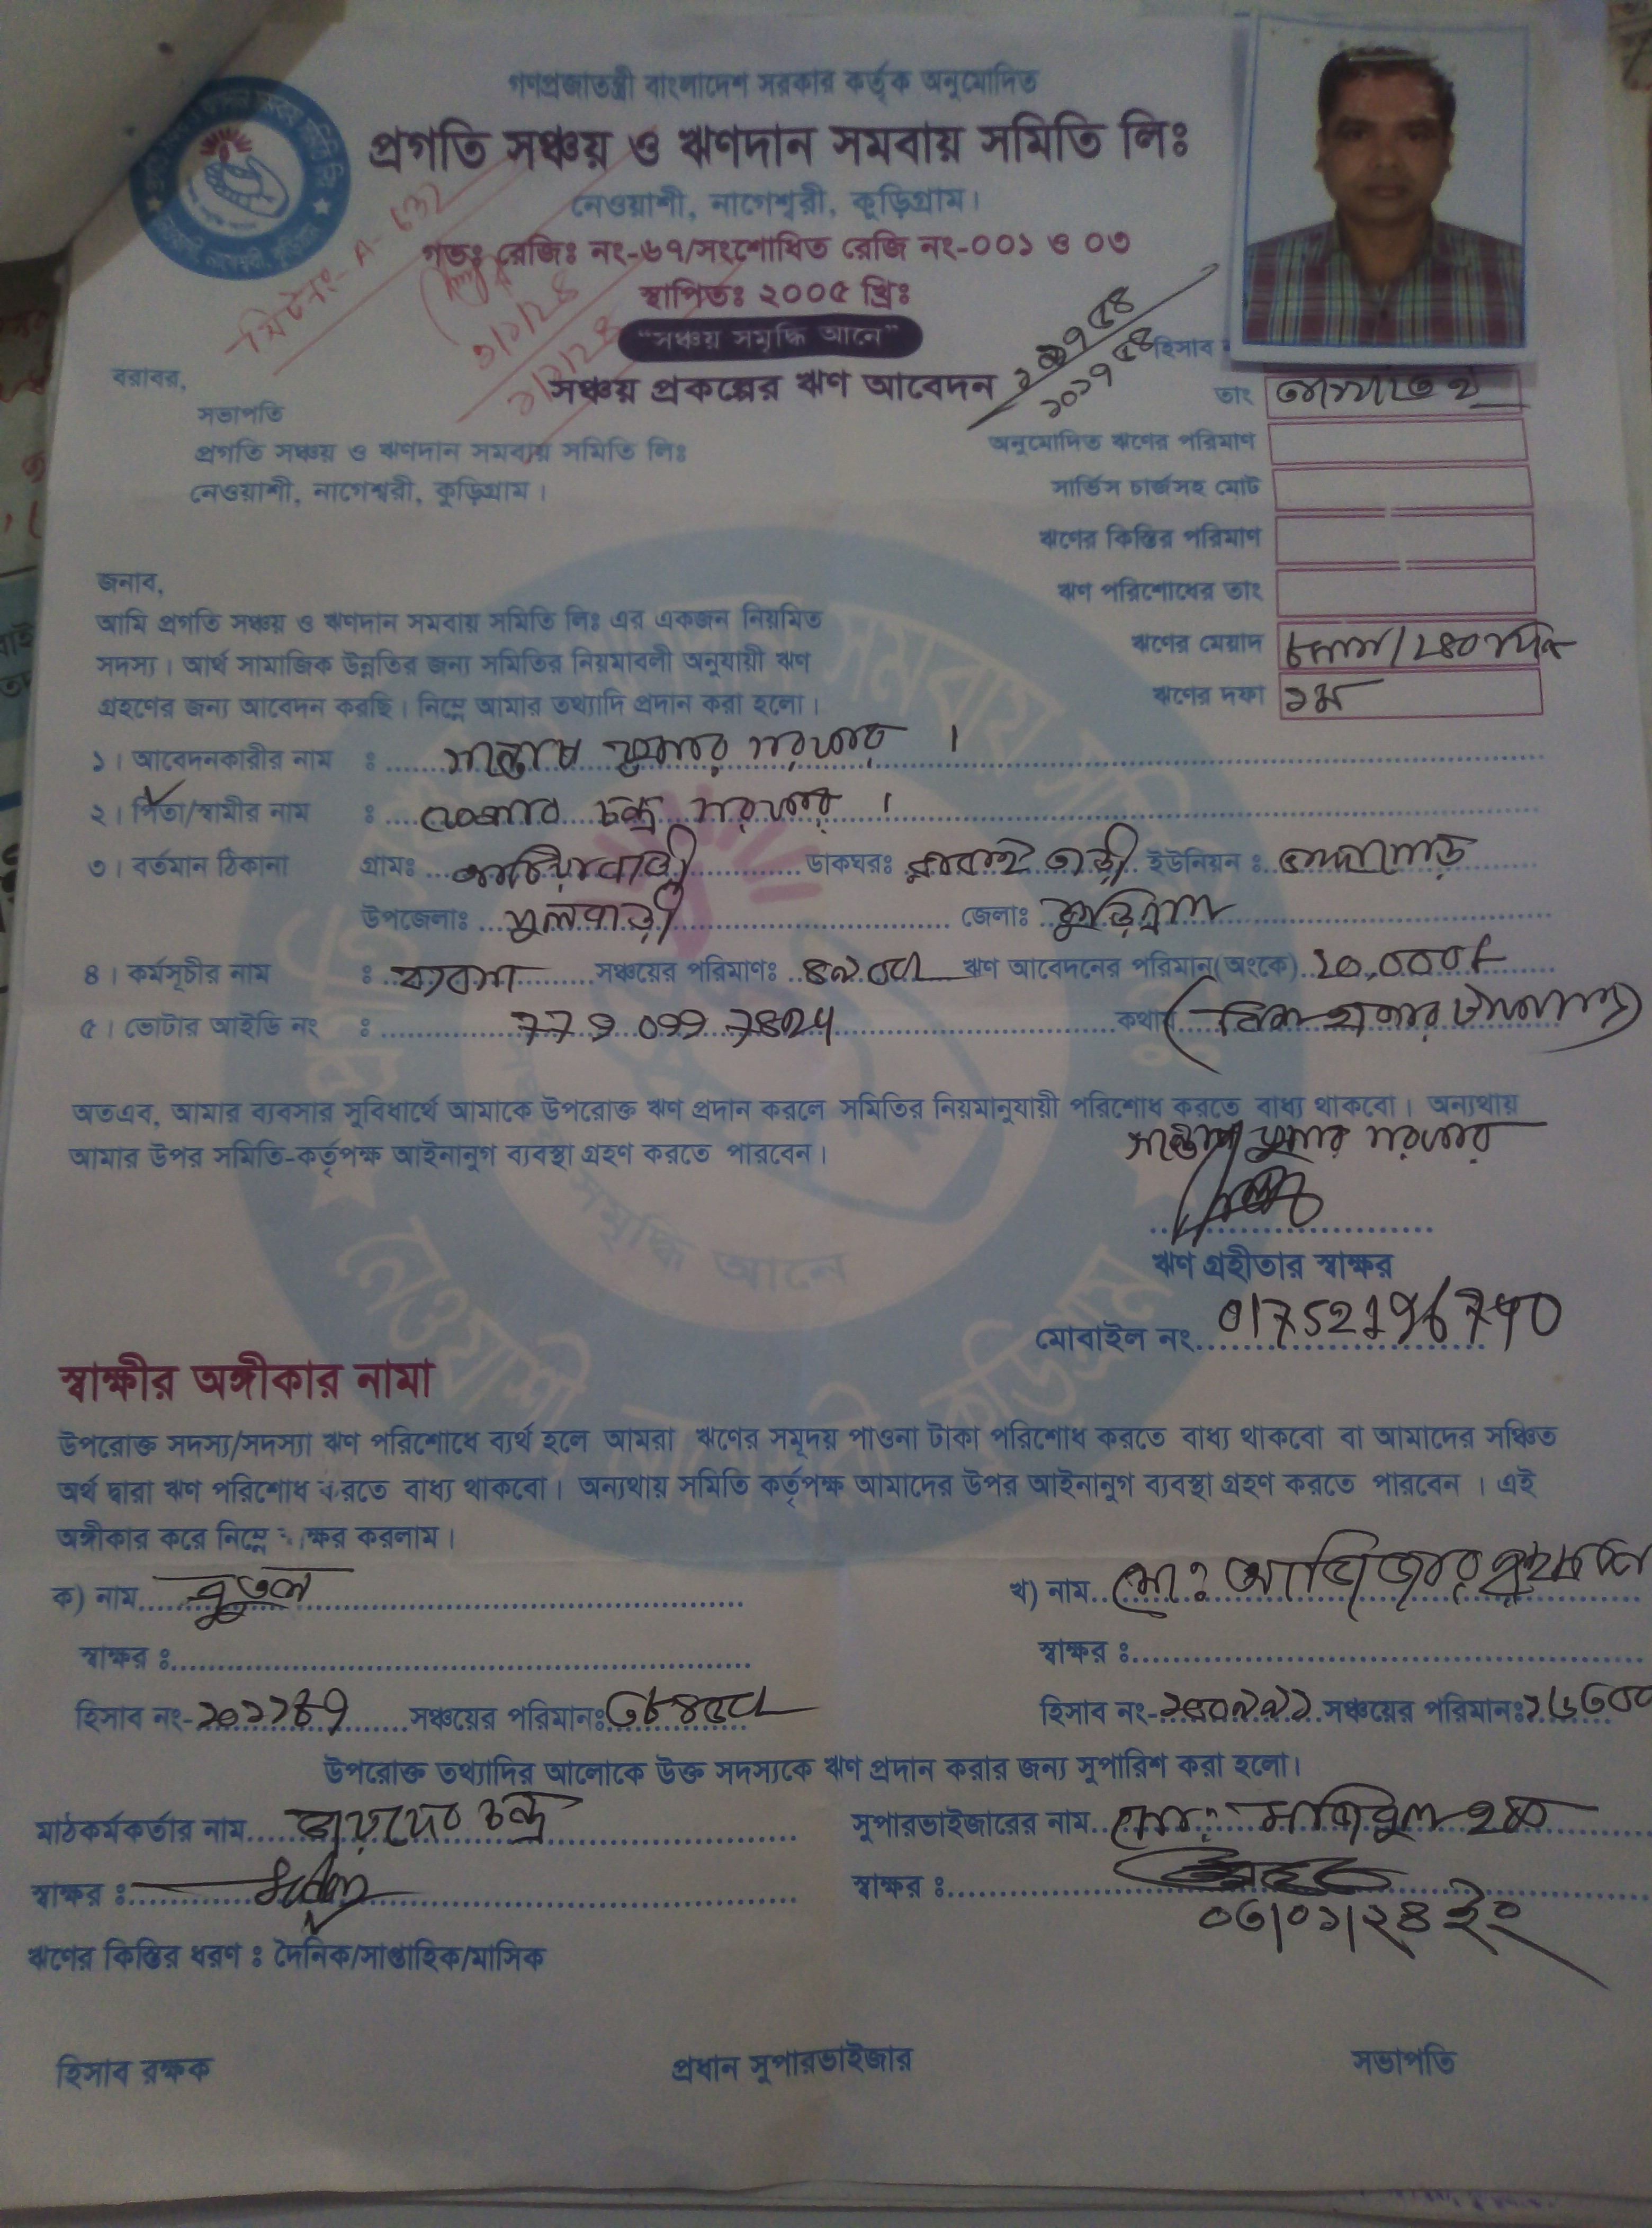 গণপ্রজাতন্ত্রী বাংলাদেশ সরকার কর্তৃক অনুমোদিত
প্রগতি সঞ্চয় ও ঋণদান সমবায় সমিতি লিঃ
নেওয়াশী, নাগেশ্বরী, কুড়িগ্রাম।
গভঃ রেজিঃ নং-৬৭/সংশোধিত রেজি নং-০০১ ও ০৩
স্থাপিতঃ ২০০৫ খ্রিঃ
"সঞ্চয় সমৃদ্ধি আনে"
সঞ্চয় প্রকল্পের ঋণ আবেদন
১০১৭৫৪
হিসাব
বরাবর,
সভাপতি
প্রগতি সঞ্চয় ও ঋণদান সমবায় সমিতি লিঃ
নেওয়াশী, নাগেশ্বরী, কুড়িগ্রাম।
তাং
অনুমোদিত ঋণের পরিমাণ
সার্ভিস চার্জসহ মোট
ঋণের কিস্তির পরিমাণ
ঋণ পরিশোধের তাং
ঋণের মেয়াদ ৮মাস/২৪০দিন
ঋণের দফা ১ম
জনাব,
আমি প্রগতি সঞ্চয় ও ঋণদান সমবায় সমিতি লিঃ এর একজন নিয়মিত
সদস্য। আর্থ সামাজিক উন্নতির জন্য সমিতির নিয়মাবলী অনুযায়ী ঋণ
গ্রহণের জন্য আবেদন করছি। নিম্নে আমার তথ্যাদি প্রদান করা হলো।
১। আবেদনকারীর নাম : সন্তোষ কুমার সরকার ।
২। পিতা/স্বামীর নাম : চন্দ্র সরকার ।
৩। বর্তমান ঠিকানা গ্রামঃ ডাকঘরঃ ইউনিয়ন :
উপজেলাঃ ফুলবাড়ী জেলাঃ কুড়িগ্রাম
৪। কর্মসূচীর নাম : ব্যবসা সঞ্চয়ের পরিমাণঃ ঋণ আবেদনের পরিমান (অংকে) ২০,০০০/-
৫। ভোটার আইডি নং : কথায় (বিশ হাজার টাকা মাত্র)
অতএব, আমার ব্যবসার সুবিধার্থে আমাকে উপরোক্ত ঋণ প্রদান করলে সমিতির নিয়মানুযায়ী পরিশোধ করতে বাধ্য থাকবো। অন্যথায়
আমার উপর সমিতি-কর্তৃপক্ষ আইনানুগ ব্যবস্থা গ্রহণ করতে পারবেন।
সন্তোষ কুমার সরকার
ঋণ গ্রহীতার স্বাক্ষর
মোবাইল নং
স্বাক্ষীর অঙ্গীকার নামা
উপরোক্ত সদস্য/সদস্যা ঋণ পরিশোধে ব্যর্থ হলে আমরা ঋণের সমূদয় পাওনা টাকা পরিশোধ করতে বাধ্য থাকবো বা আমাদের সঞ্চিত
অর্থ দ্বারা ঋণ পরিশোধ করতে বাধ্য থাকবো। অন্যথায় সমিতি কর্তৃপক্ষ আমাদের উপর আইনানুগ ব্যবস্থা গ্রহণ করতে পারবেন । এই
অঙ্গীকার করে নিম্নে স্বাক্ষর করলাম।
ক) নাম পুতুল খ) নাম মোঃ
স্বাক্ষর : স্বাক্ষর :
হিসাব নং- সঞ্চয়ের পরিমানঃ হিসাব নং- সঞ্চয়ের পরিমানঃ
উপরোক্ত তথ্যাদির আলোকে উক্ত সদস্যকে ঋণ প্রদান করার জন্য সুপারিশ করা হলো।
মাঠকর্মকর্তার নাম জয়দেব চন্দ্র সুপারভাইজারের নাম মোঃ হক
স্বাক্ষর : স্বাক্ষর :
০৩/০১/২৪ ইং
ঋণের কিস্তির ধরণ : দৈনিক/সাপ্তাহিক/মাসিক
হিসাব রক্ষক প্রধান সুপারভাইজার সভাপতি